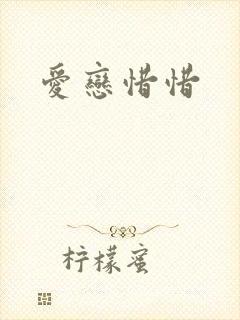 愛戀惜惜
柠檬蜜